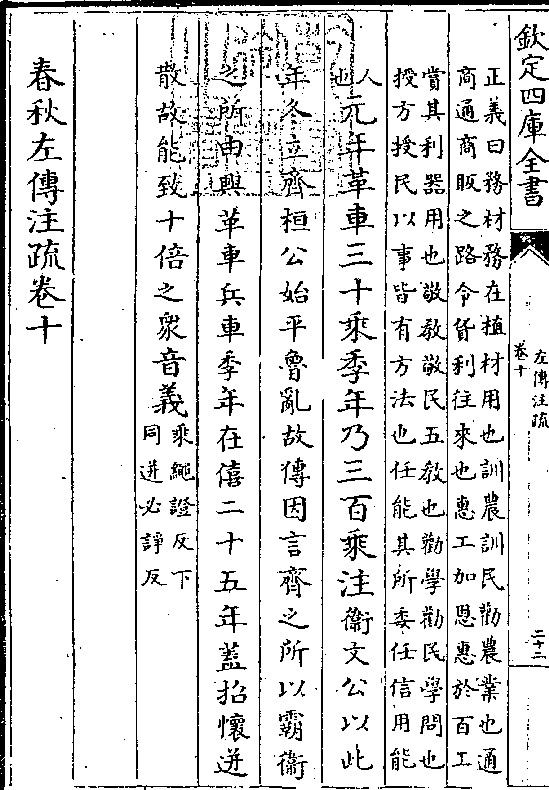 欽定四庫全書
左傳注疏
卷十
二十二
正義曰務材務在植材用也訓農訓民勸農業也通
商通商販之路令貨利往來也惠工加恩惠於百工
賞其利器用也敬教敬民五教也勸學勸民學問也
授方授民以事皆有方法也任能其所委任信用能
人也
元年革車三十乘季年乃三百乘注衞文公以此
年冬立齊桓公始平魯亂故傳因言齊之所以霸衞
之所由興革車兵車季年在僖二十五年蓋招懷迸
散故能致十倍之衆音義
乘繩證反下
同迸必諍反
春秋左傳注疏卷十